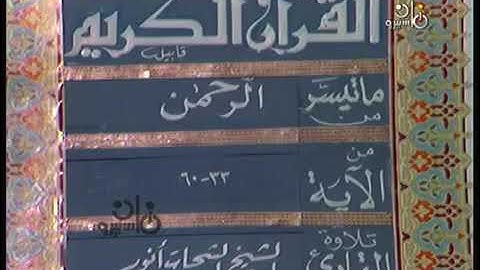 القرآن الكريم
قابيل
ما تيسر من الرحمن
من الآية ٣٣-٦٠
تلاوة القارئ الشيخ الشحات أنور